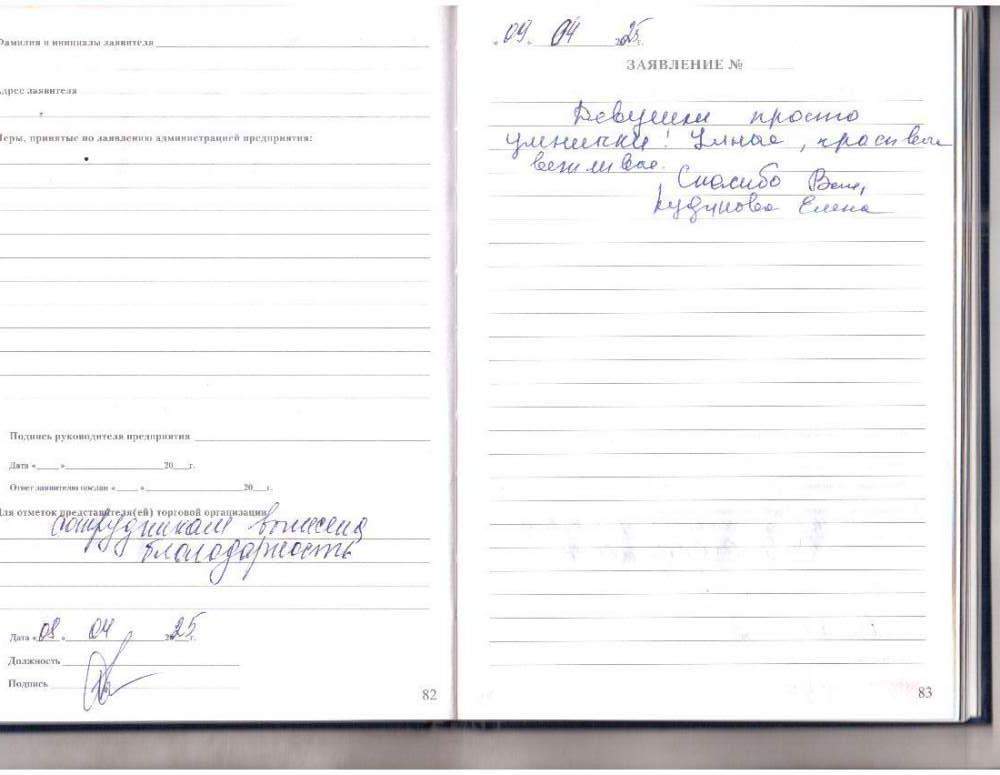 Фамилия и инициалы заявителя
Адрес заявителя
Меры, принятые по заявлению администрацией предприятия:
Подпись руководителя предприятия
Дата «___»___20___г.
Ответ заявителю послан «___»___20___г.
Для отметок представителя(ей) торговой организации
сотрудникам вынесена
благодарность
Дата «09» 04 2025г.
Должность
Подпись
82
«09» 04 2025г.
ЗАЯВЛЕНИЕ №
Девушки просто
умнички! Умные, красивые
вежливые.
Спасибо Вам,
Елена
83